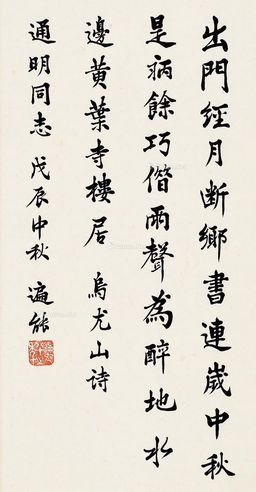 出門經月断鄉書連歲中秋
是病餘巧借雨聲為醉地水
邊黄葉寺樓居 烏尤山诗
通明同志 戊辰中秋 遍能